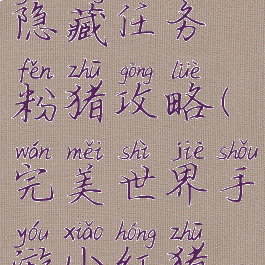 隐藏任务
fěn zhū gōng lüè
粉猪攻略(
wán měi shì jiè shǒu
完美世界手
yóu xiǎo hóng zhū
游小红猪